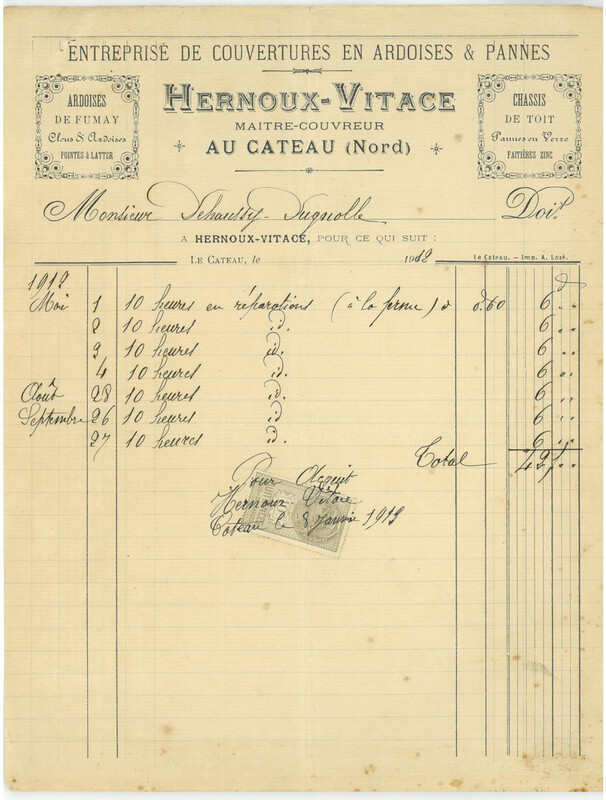 ENTREPRISE DE COUVERTURES EN ARDOISES & PANNES
ARDOISES
DE FUMAY
Clous & Ardoises
POINTES À LATTER
HERNOUX-VITACE
MAITRE-COUVREUR
AU CATEAU (Nord)
CHASSIS
DE TOIT
Pannes en Verre
FAITIÈRES ZINC
Monsieur Doit
A HERNOUX-VITACE, POUR CE QUI SUIT :
LE CATEAU, le 1912
Le Cateau. – Imp. A. Lozé.
1912
Mai 1 10 heures en réparations (à la ferme) à 0.60 6 ..
2 10 heures id. 6 ..
3 10 heures id. 6 ..
4 10 heures id. 6 ..
Août 28 10 heures id. 6 ..
Septembre 26 10 heures id 6 ..
27 10 heures id. 6 ..
Total 42, ..
Pour Acquit
Hernoux Vitace
Cateau le 8 Janvier 1913